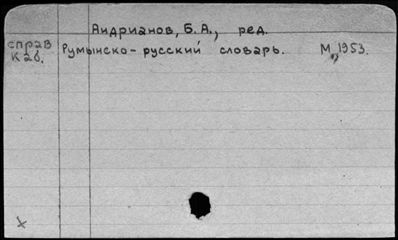 Андрианов, Б. А., ред.
справ Румынско-русский словарь. М., 1953.
каб.